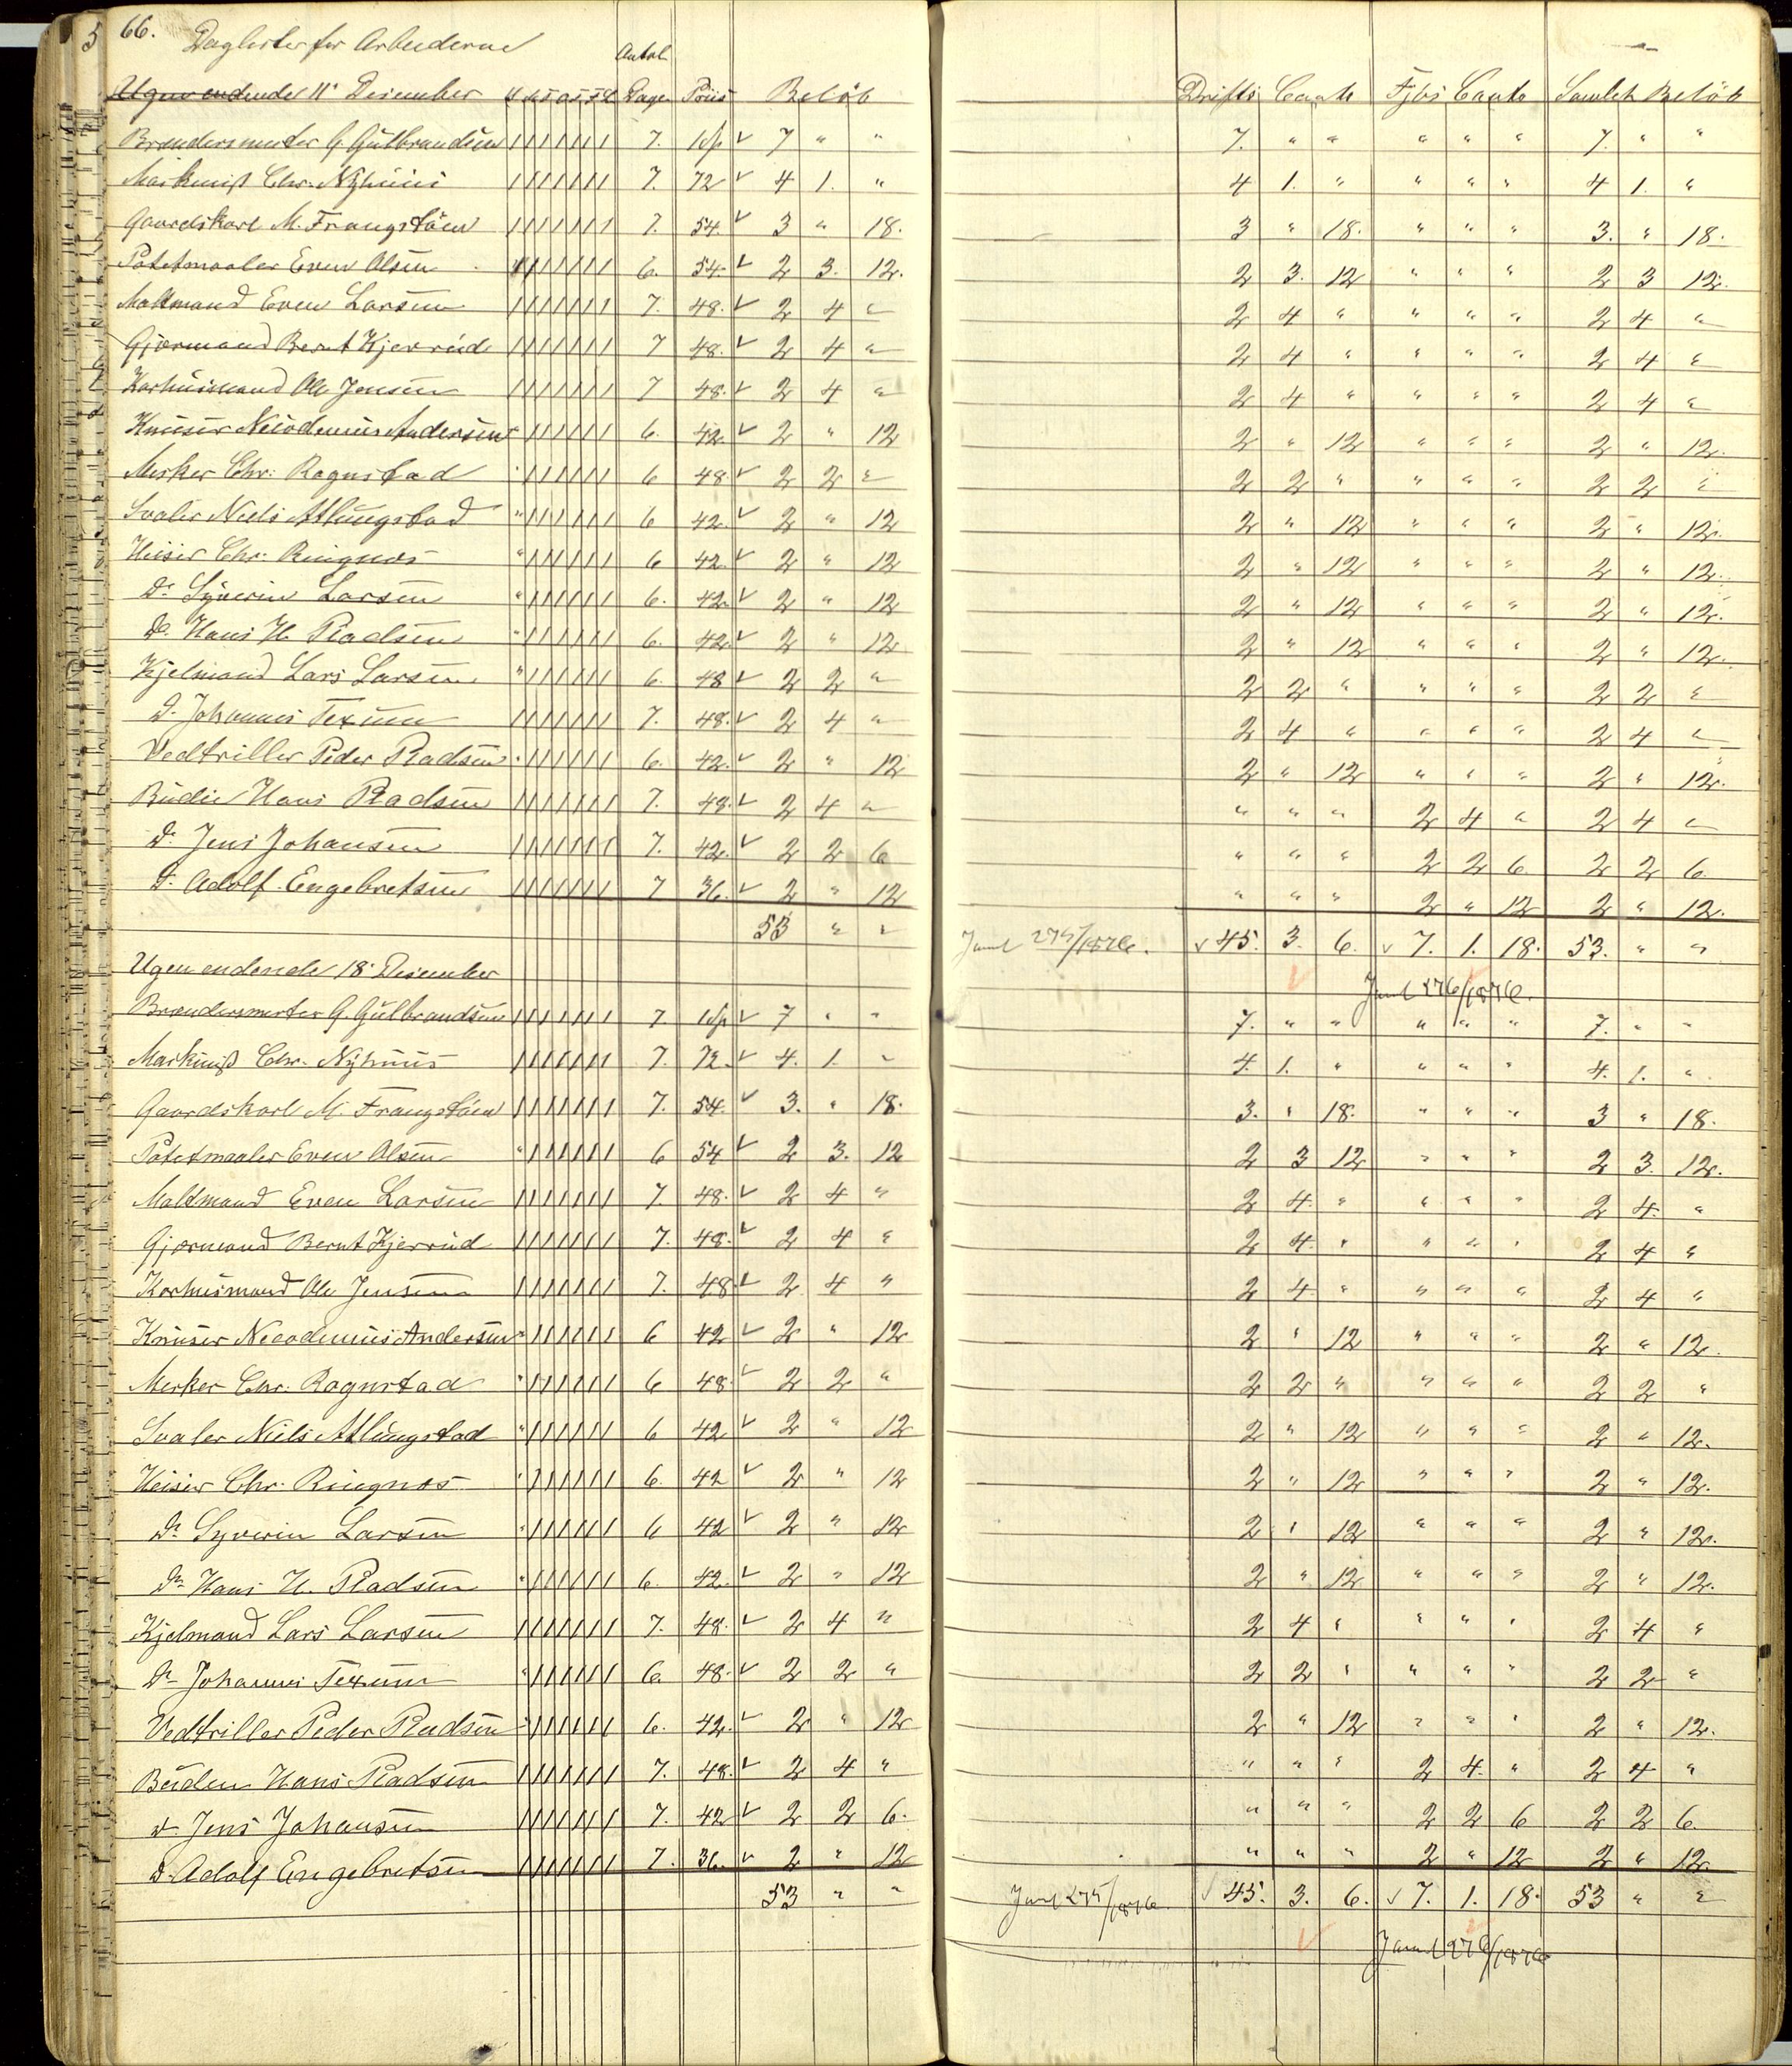 66. Daglister for Arbeiderne
Antal
Ugen endende 11' Desember Dage Priis Beløb Drifts Conto Fjøs Conto Samlet Beløb
Brændermester G. Gulbrandsen 7. 1 Sp 7 " " 7. " " " " " 7. " "
Maskinist Chr. Nyhuus 7. 72 4 1. " 4 1. " " " " 4 1. "
Gaardskarl M. Frangstøen 7. 54. 3 " 18. 3 " 18. " " " 3. " 18.
Potetmaaler Even Olsen 6. 54 2 3. 12. 2 3. 12 " " " 2 3 12.
Maltmand Even Larsen 7. 48. 2 4 " 2 4 " " " " 2 4 "
Gjærmand Bernt Kjerrud 7 48. 2 4 " 2 4 " " " " 2 4 "
Karhuusmand Ole Jensen 7 48. 2 4 " 2 4 " " " " 2 4 "
Knuser Nicodemus Andersen 6. 42 2 " 12 2 " 12 " " " 2 " 12.
Mesker Chr. Rognstad 6 48 2 2 " 2 2 " " " " 2 2 "
Svaler Niels Atlungstad 6 42. 2 " 12 2 " 12 " " " 2 " 12.
Heiser Chr. Ringnes 6 42 2 " 12 2 " 12 " " " 2 " 12.
Do Syverin Larsen 6. 42 2 " 12 2 " 12 " " " 2 " 12.
Do Hans H. Pladsen 6. 42 2 " 12 2 " 12 " " " 2 " 12.
Kjelmand Lars Larsen 6. 48 2 2 " 2 2 " " " " 2 2 "
Do Johannes Texum 7. 48. 2 4 " 2 4 " " " " 2 4 "
Vedtriller Peder Pladsen 6. 42. 2 " 12 2 " 12 " " " 2 " 12.
Budeie Hans Pladsen 7. 48. 2 4 " " " " 2 4 " 2 4 "
Do Jens Johansen 7. 42. 2 2 6 " " " 2 2 6. 2 2 6.
Do Adolf Engebretsen 7 36. 2 " 12 " " " 2 " 12 2 " 12.
53 " " Jurnl 275/1876. 45. 3. 6. 7. 1. 18. 53. " "
Ugen endende 18' Desember Jurnl 276/1876.
Brændermester G. Gulbrandsen 7. 1 Sp 7 " " 7. " " " " " 7. " "
Maskinist Chr. Nyhuus 7. 72. 4. 1. " 4. 1. " " " " 4. 1. "
Gaardskarl M. Frangstøen 7. 54. 3. " 18. 3. " 18. " " " 3 " 18.
Potetmaaler Even Olsen 6 54 2 3. 12 2 3 12 " " " 2 3. 12.
Maltmand Even Larsen 7. 48. 2 4 " 2 4. " " " " 2 4. "
Gjærmand Bernt Kjerrud 7. 48. 2 4 " 2 4. " " " " 2 4 "
Karhuusmand Ole Jensen 7. 48 2 4 " 2 4 " " " " 2 4 "
Knuser Nicodemus Andersen 6 42 2 " 12 2 " 12 " " " 2 " 12.
Mesker Chr. Rognstad 6 48 2 2 " 2 2 " " " " 2 2 "
Svaler Niels Atlungstad 6 42 2 " 12 2 " 12 " " " 2 " 12.
Heiser Chr. Ringnes 6. 42 2 " 12 2 " 12 " " " 2 " 12.
Do Syverin Larsen 6 42 2 " 12 2 " 12 " " " 2 " 12.
Do Hans H. Pladsen 6. 42. 2 " 12 2 " 12 " " " 2 " 12.
Kjelmand Lars Larsen 7. 48. 2 4 " 2 4 " " " " 2 4 "
Do Johannes Texum 6. 48. 2 2 " 2 2 " " " " 2 2 "
Vedtriller Peder Pladsen 6. 42. 2 " 12 2 " 12 " " " 2 " 12.
Budeien Hans Pladsen 7. 48. 2 4 " " " " 2 4. " 2 4 "
Do Jens Johansen 7. 42 2 2 6. " " " 2 2 6 2 2 6.
Do Adolf Engebretsen 7. 36. 2 " 12 " " " 2 " 12 2 " 12
53 " " Jurnl 275/1876. 45. 3. 6. 7. 1. 18. 53 " "
Jurnl 276/1876